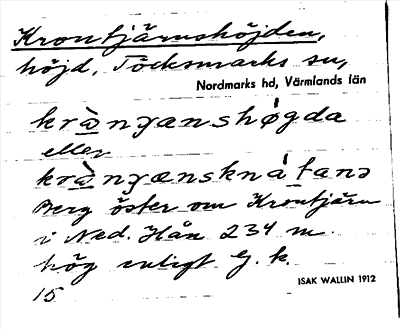 Krontjärnshöjden,
höjd, Töcksmarks sn,
Nordmarks hd, Värmlands län
krɷ̀nyanshǿgda
eller
krɷ̀nyænsknátanɔ
Berg öster om Krontjärn
i Ned. Hån 234 m
hög enligt G. k.
ISAK WALLIN 1912
15